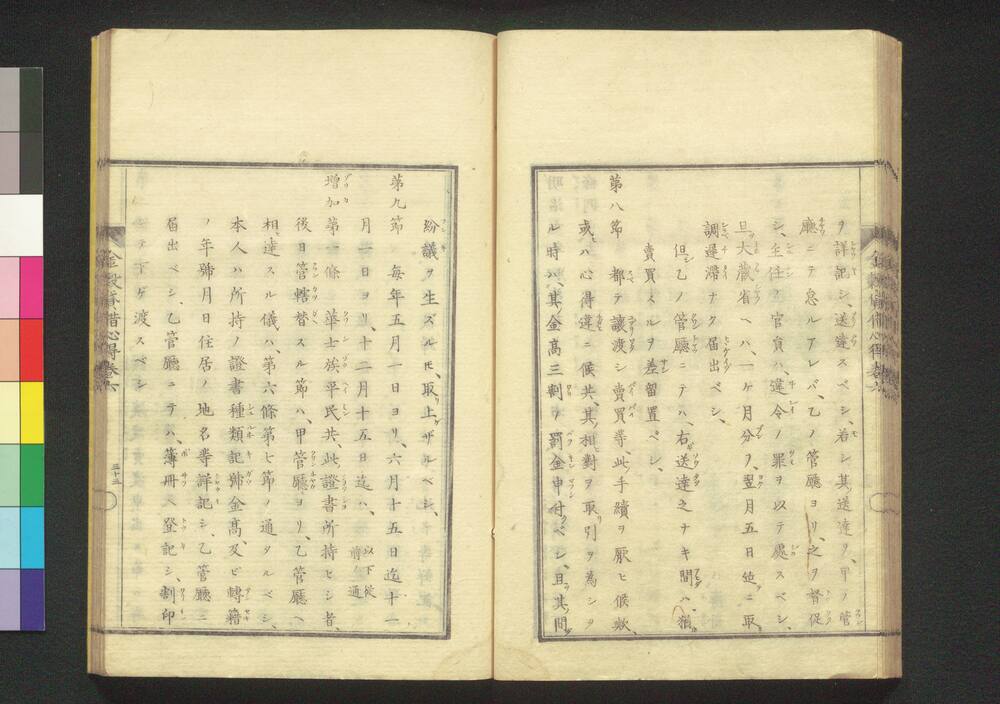 ヲ詳記シ、送達スベシ、若シ其送達ヲ、甲ノ管
廳ニテ怠ルアレバ、乙ノ管廳ヨリ、之ヲ督促
シ、主任ノ官員ハ、違令ノ罪ヲ以テ處スベシ、
且大藏省ヘハ、一ケ月分ヲ、翌月五日迄ニ取
調遲滯ナク届出ベシ、
但乙ノ管廳ニテハ、右送達之ナキ間ハ、猶
賣買スルヲ差留置ベシ、
第八節 都テ讓渡シ賣買等、此手續ヲ厭ヒ候歟、
或ハ心得違ニ候共、其相對ヲ取引ヲ為シタ
ル時ハ、其金高三割ヲ罰金申付ベシ、且其間
紛議ヲ生ズル𪜈、取上ザルベシ、
第九節 毎年五月一日ヨリ、六月十五日迄十一
月一日ヨリ、十二月十五日迄ハ、以下從前ノ通
増加第一條 華士族平民共、此證書所持ヒシ者、
後日管轄替スル節ハ、甲管廳ヨリ、乙管廳ヘ
相達スル儀ハ、第六條第七節ノ通タルベシ、
本人ハ所持ノ證書種類記號金高、及ビ轉籍
ノ年號月日住居ノ地名等詳記シ、乙管廳ニ
届出ベシ、乙管廳ニテハ、簿冊ヘ登記シ、割印
シテ下ゲ渡スベシ
金穀貸借心得巻六
三十五
金穀貸借心得巻六